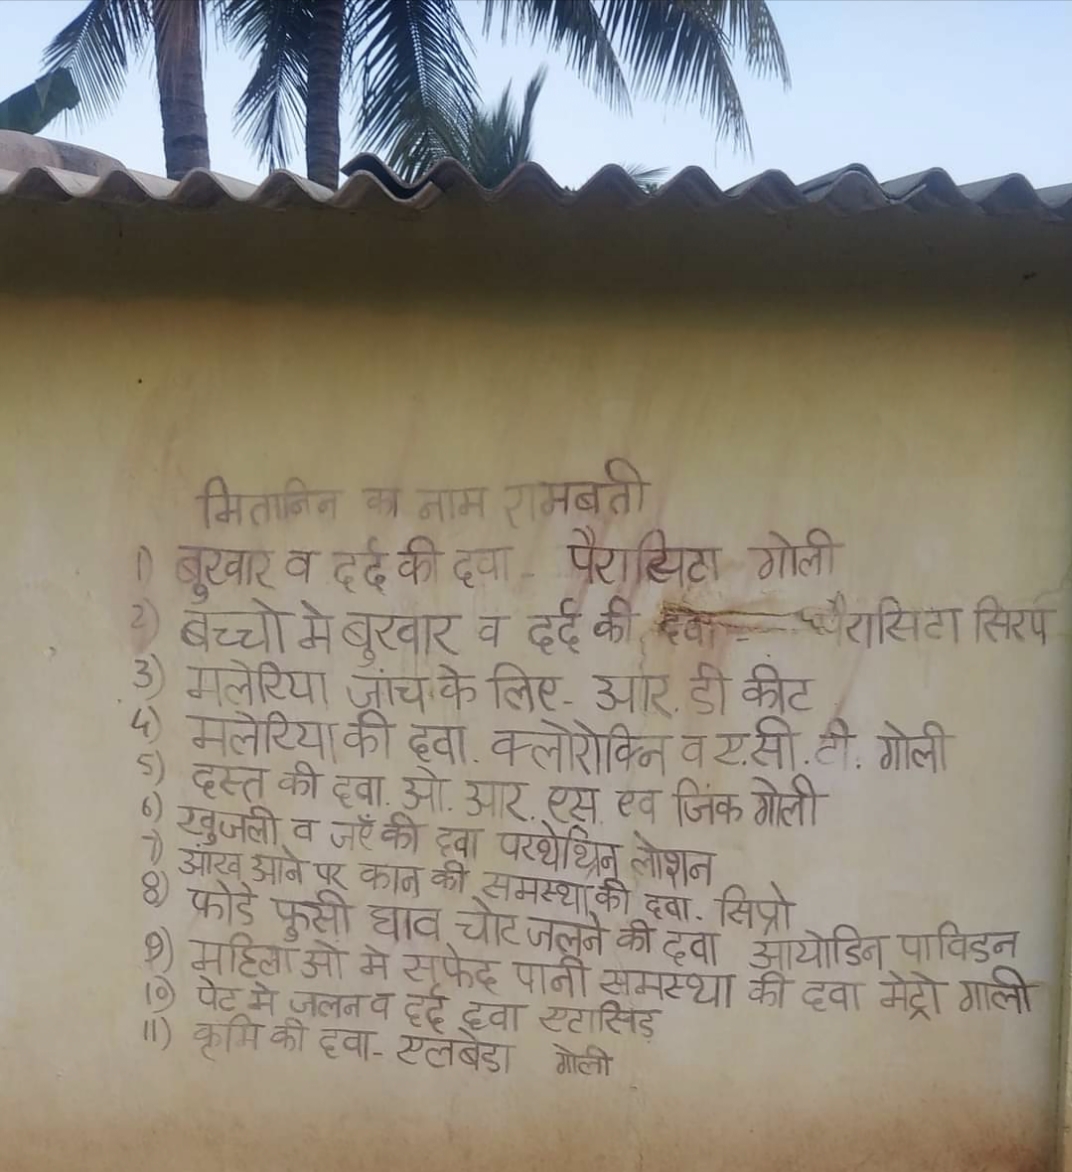 मितानिन का नाम रामबती
1) बुखार व दर्द की दवा - पैरासिटा गोली
2) बच्चो मे बुखार व दर्द की दवा - पैरासिटा सिरप
3) मलेरिया जांच के लिए - आर. डी कीट
4) मलेरिया की दवा. क्लोरोक्निन व ए.सी.टी. गोली
5) दस्त की दवा. ओ. आर. एस. एव जिंक गोली
6) खुजली व जएँ की दवा परथेथ्रिन लोशन
7) आंख आने पर कान की समस्था की दवा. सिप्रो
8) फोडे फुसी घाव चोट जलने की दवा आयोडिन पाविडन
9) महिलाओ मे सफेद पानी समस्था की दवा मेट्रो गाली
10) पेट मे जलन व दर्द दवा रटासिड़
11) कृमि की दवा - एलबेडा गोली